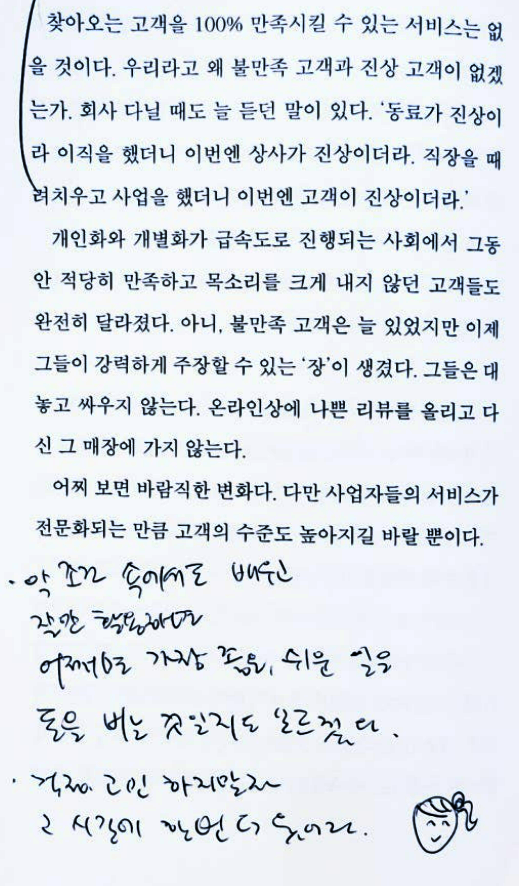 찾아오는 고객을 100% 만족시킬 수 있는 서비스는 없
을 것이다. 우리라고 왜 불만족 고객과 진상 고객이 없겠
는가. 회사 다닐 때도 늘 듣던 말이 있다. ‘동료가 진상이
라 이직을 했더니 이번엔 상사가 진상이더라. 직장을 때
려치우고 사업을 했더니 이번엔 고객이 진상이더라.’
개인화와 개별화가 급속도로 진행되는 사회에서 그동
안 적당히 만족하고 목소리를 크게 내지 않던 고객들도
완전히 달라졌다. 아니, 불만족 고객은 늘 있었지만 이제
그들이 강력하게 주장할 수 있는 ‘장’이 생겼다. 그들은 대
놓고 싸우지 않는다. 온라인상에 나쁜 리뷰를 올리고 다
신 그 매장에 가지 않는다.
어찌 보면 바람직한 변화다. 다만 사업자들의 서비스가
전문화되는 만큼 고객의 수준도 높아지길 바랄 뿐이다.
· 악 조건 속에서도 배우신
잘만 활용하면
가장 좁을, 쉬운 일은
돈을 버는 것일지도 모르겠다.
· 걱정. 고민 하지말자
그 시간에 한번 더